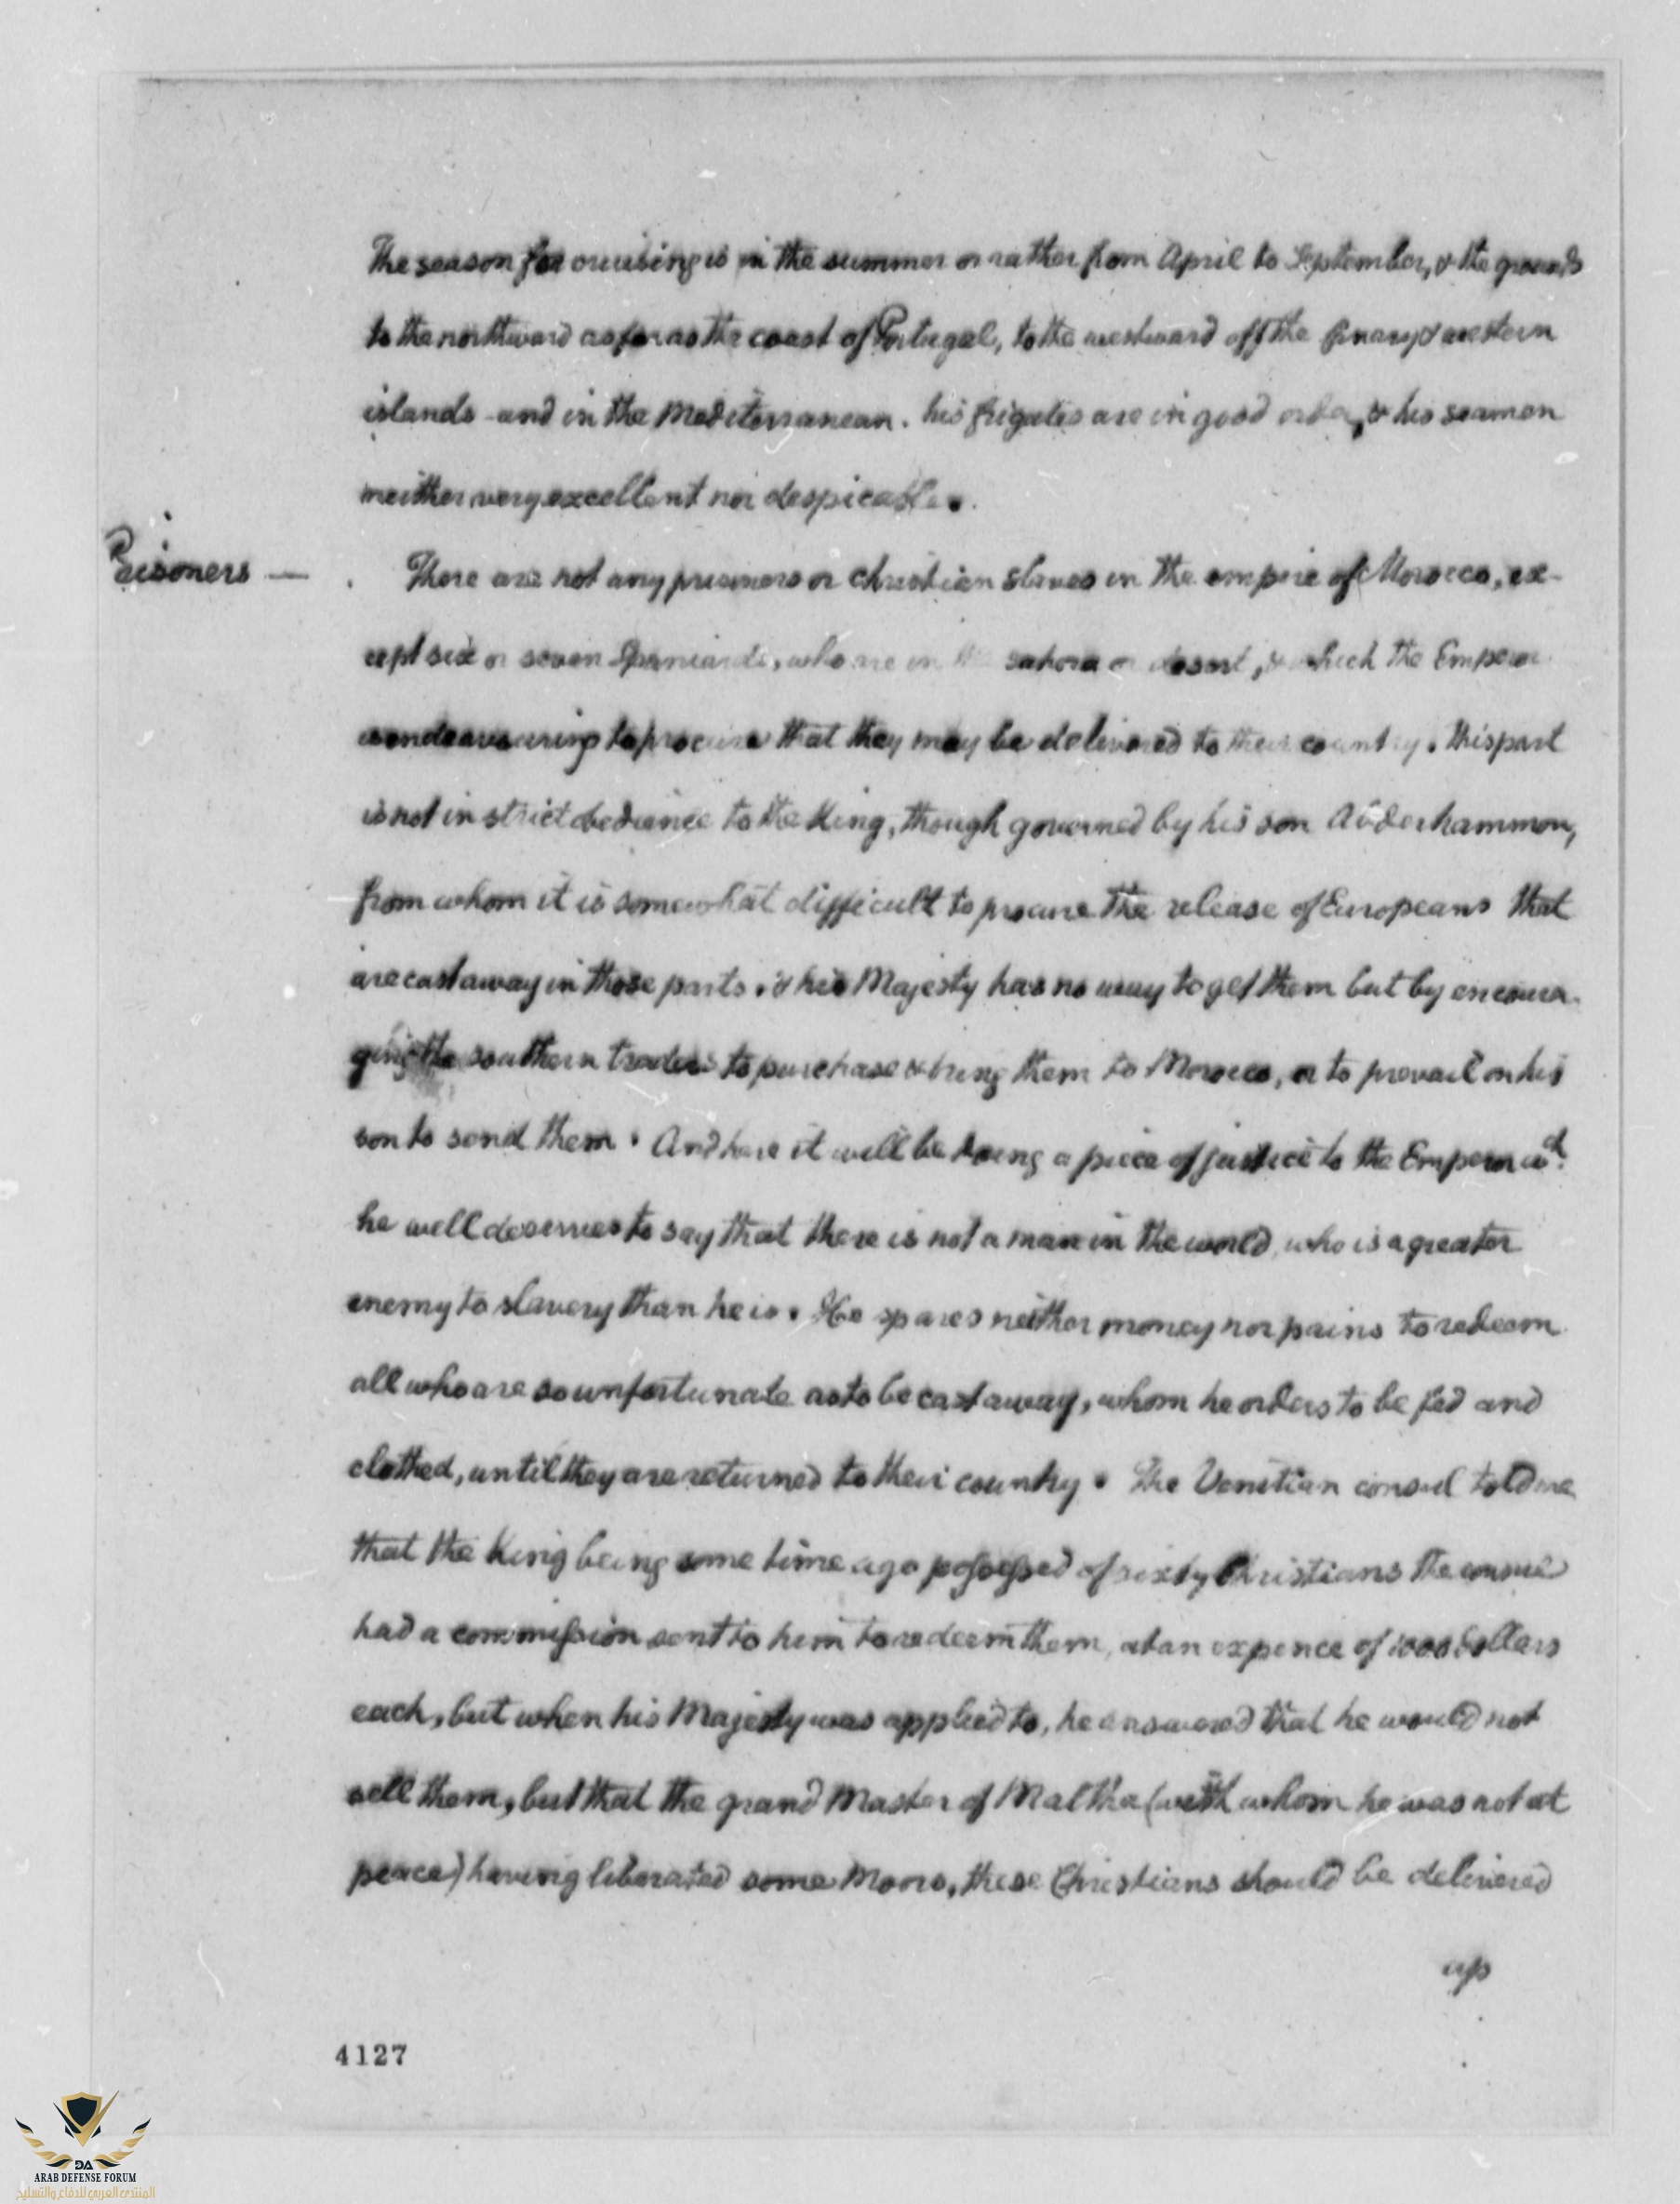 The season for cruising is in the summer or rather from April to September, & the grounds
to the northward as far as the coast of Portugal, to the westward off the Canary & western
islands and in the Mediterranean. his frigates are in good order, & his seamen
neither very excellent nor despicable.
Prisoners — There are not any prisoners or christian slaves in the empire of Morocco, ex-
cept six or seven Spaniards, who are in the sahara or desert, & which the Emperor
is endeavouring to procure that they may be delivered to their country. this part
is not in strict obedience to the King, though governed by his son Abderhammon,
from whom it is somewhat difficult to procure the release of Europeans that
are cast away in those parts. & his Majesty has no way to get them but by encoura-
ging the southern traders to purchase & bring them to Morocco, or to prevail on his
son to send them. And here it will be doing a piece of justice to the Emperor wch.
he well deserves to say that there is not a man in the world, who is a greater
enemy to slavery than he is. He spares neither money nor pains to redeem
all who are so unfortunate as to be cast away, whom he orders to be fed and
clothed, until they are returned to their country. The Venetian consul told me
that the King being some time ago possessed of sixty Christians the consul
had a commission sent to him to redeem them, at an expence of 1000 Dollars
each, but when his Majesty was applied to, he answered that he would not
sell them, but that the grand Master of Maltha (with whom he was not at
peace) having liberated some Moors, these Christians should be delivered
up
4127
DA
ARAB DEFENSE FORUM
المنتدى العربي للدفاع والتسليح